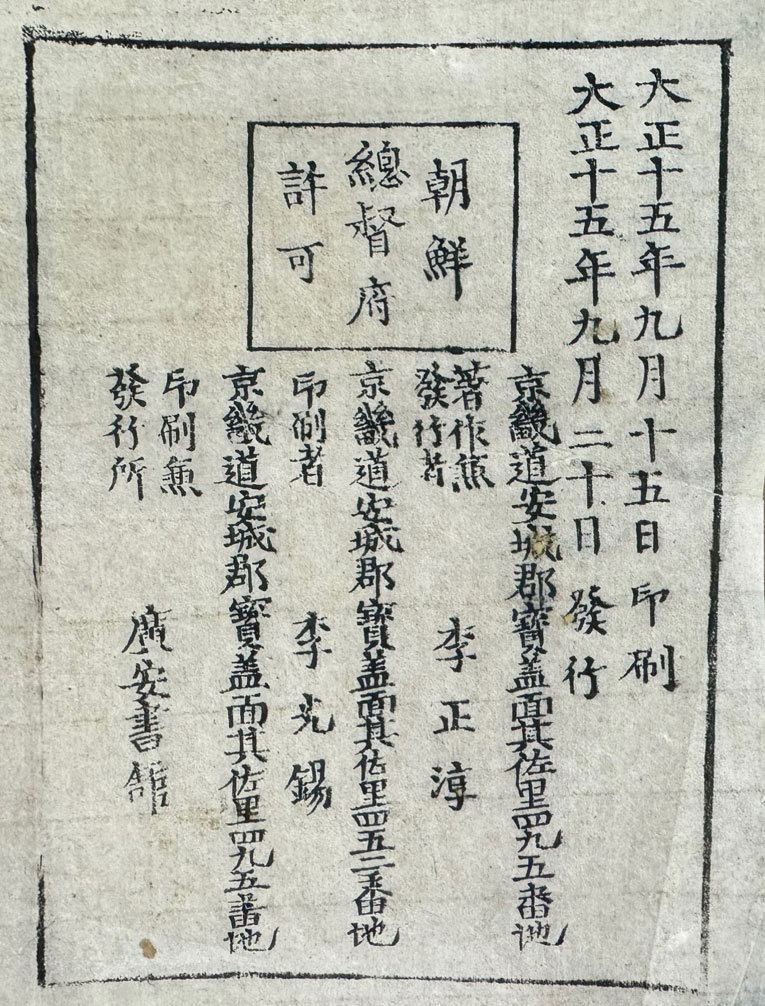 大正十五年九月十五日印刷
大正十五年九月二十日發行
朝鮮
總督府
許可
京畿道安城郡寶盖面其佐里四九五番地
著作兼
發行者
李正淳
京畿道安城郡寶盖面其佐里四五二番地
印刷者 李光錫
京畿道安城郡寶盖面其佐里四九五番地
印刷兼
發行所
廣安書舘